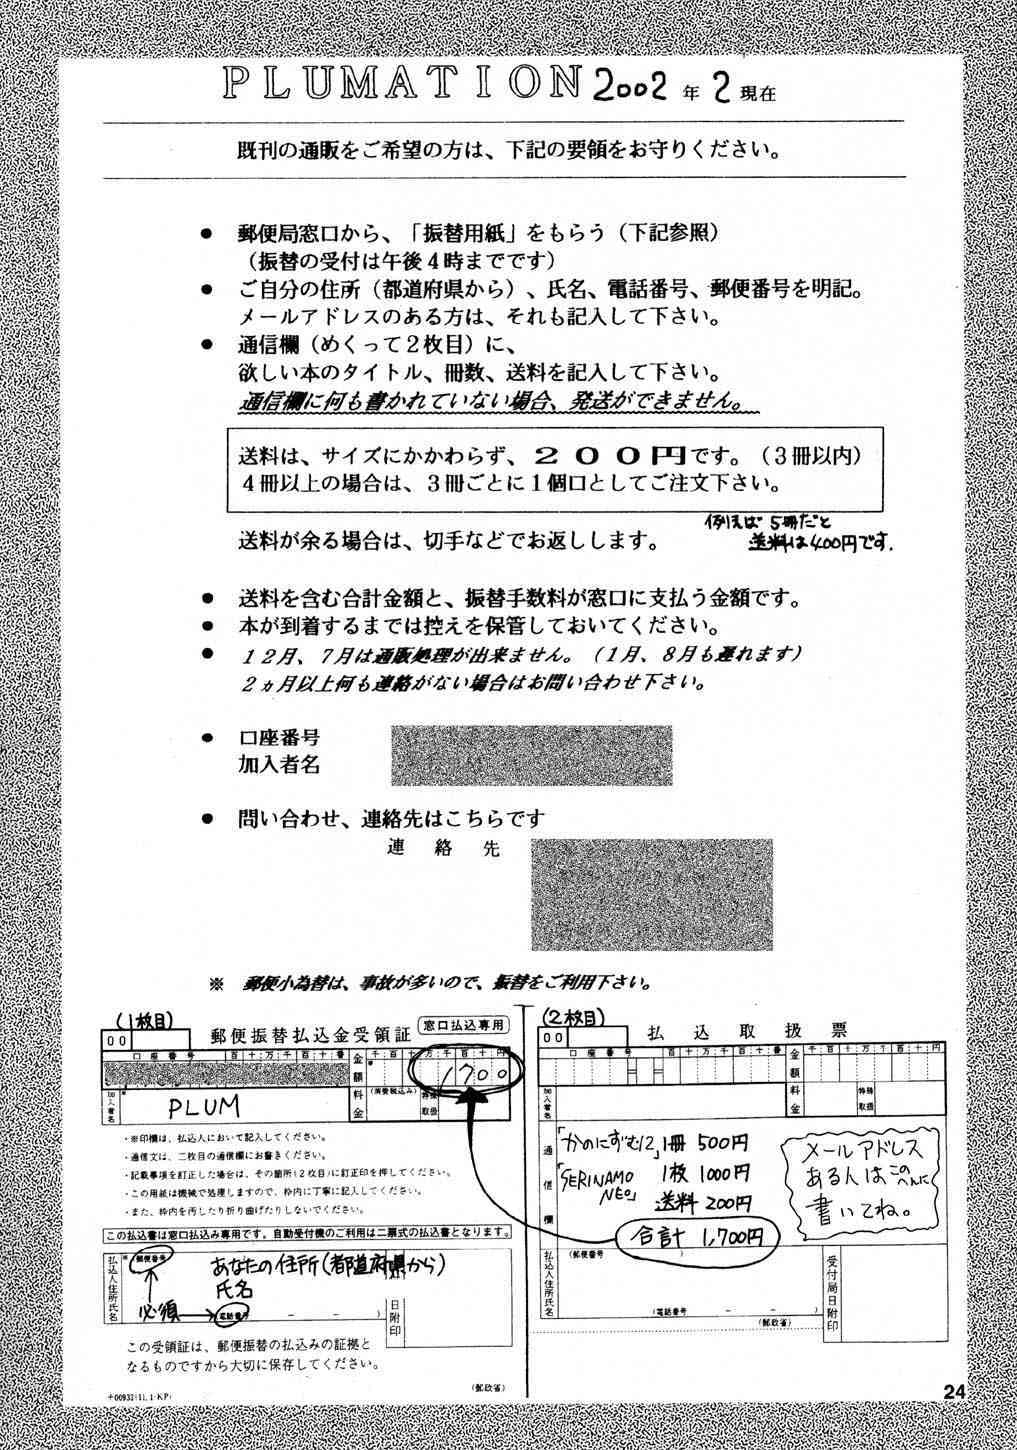 PLUMATION 2002 年 2 現在
既刊の通販をご希望の方は、下記の要領をお守りください。
● 郵便局窓口から、「振替用紙」をもらう（下記参照）
（振替の受付は午後４時までです）
● ご自分の住所（都道府県から）、氏名、電話番号、郵便番号を明記。
メールアドレスのある方は、それも記入して下さい。
● 通信欄（めくって２枚目）に、
欲しい本のタイトル、冊数、送料を記入して下さい。
通信欄に何も書かれていない場合、発送ができません。
送料は、サイズにかかわらず、２００円です。（３冊以内）
４冊以上の場合は、３冊ごとに１個口としてご注文下さい。
例えば 5冊だと
送料は400円です.
送料が余る場合は、切手などでお返しします。
● 送料を含む合計金額と、振替手数料が窓口に支払う金額です。
● 本が到着するまでは控えを保管しておいてください。
● １２月、７月は通販処理が出来ません。（１月、８月も遅れます）
２ヵ月以上何も連絡がない場合はお問い合わせ下さい。
● 口座番号
加入者名
● 問い合わせ、連絡先はこちらです
連絡先
※ 郵便小為替は、事故が多いので、振替をご利用下さい。
(1枚目)
00
郵便振替払込金受領証
窓口払込専用
口座番号 百十万千百十番
金額
千百十万千百十円
1700
加入者名
PLUM
料金
(消費税込み)
特殊取扱
・※印欄は、払込人において記入してください。
・通信文は、二枚目の通信欄にお書きください。
・記載事項を訂正した場合は、その箇所(2枚目)に訂正印を押してください。
・この用紙は機械で処理しますので、枠内に丁寧に記入してください。
・また、枠内を汚したり折り曲げたりしないでください。
この払込書は窓口払込み専用です。自動受付機のご利用は二票式の払込書となります。
払込人住所氏名
※
郵便番号
あなたの住所(都道府県から)
氏名
必須
(電話番号 － － )
日附印
この受領証は、郵便振替の払込みの証拠と
なるものですから大切に保存してください。
(郵政省)
(2枚目)
00
払込取扱票
口座番号 百十万千百十番
金額
千百十万千百十円
加入者名
料金
特殊取扱
通信欄
「かのにずむ12」1冊 500円
「SERINAMO NEO」 1枚 1000円
送料 200円
合計 1,700円
メールアドレス
ある人はこのへんに
書いてね。
払込人住所氏名
(郵便番号 )
(電話番号 － － )
受付局日附印
(郵政省)
24